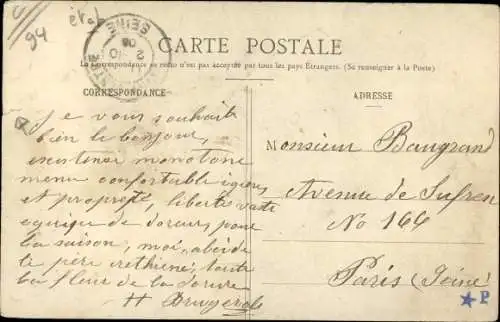 94
état
SEINE
CARTE POSTALE
La Correspondance au recto n'est pas acceptée par tous les pays Étrangers. (Se renseigner à la Poste)
CORRESPONDANCE
ADRESSE
Je vous souhaite
bien le bonjour,
existence monotone
menu confortable
et propreté, liberté
pour
la saison, moi,
le père toute
la fleur de la
H Brugerolle
Monsieur Baugrand
Avenue de Sufren
No 166
Paris (Seine)
P